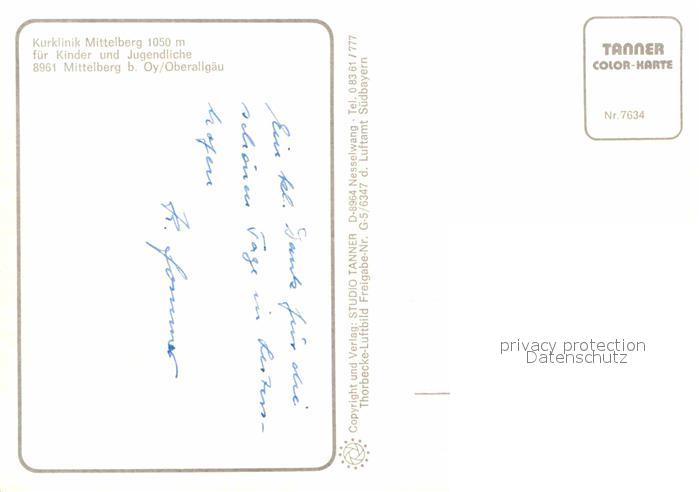 Kurklinik Mittelberg 1050 m
für Kinder und Jugendliche
8961 Mittelberg b. Oy/Oberallgäu
Ein kl. Dank für die
schönen Tage in
hofen
Copyright und Verlag: STUDIO TANNER D-8964 Nesselwang · Tel. 0 83 61 / 777
Thorbecke-Luftbild Freigabe-Nr. G-5/6347 d. Luftamt Südbayern
TANNER
COLOR-KARTE
Nr. 7634
privacy protection
Datenschutz